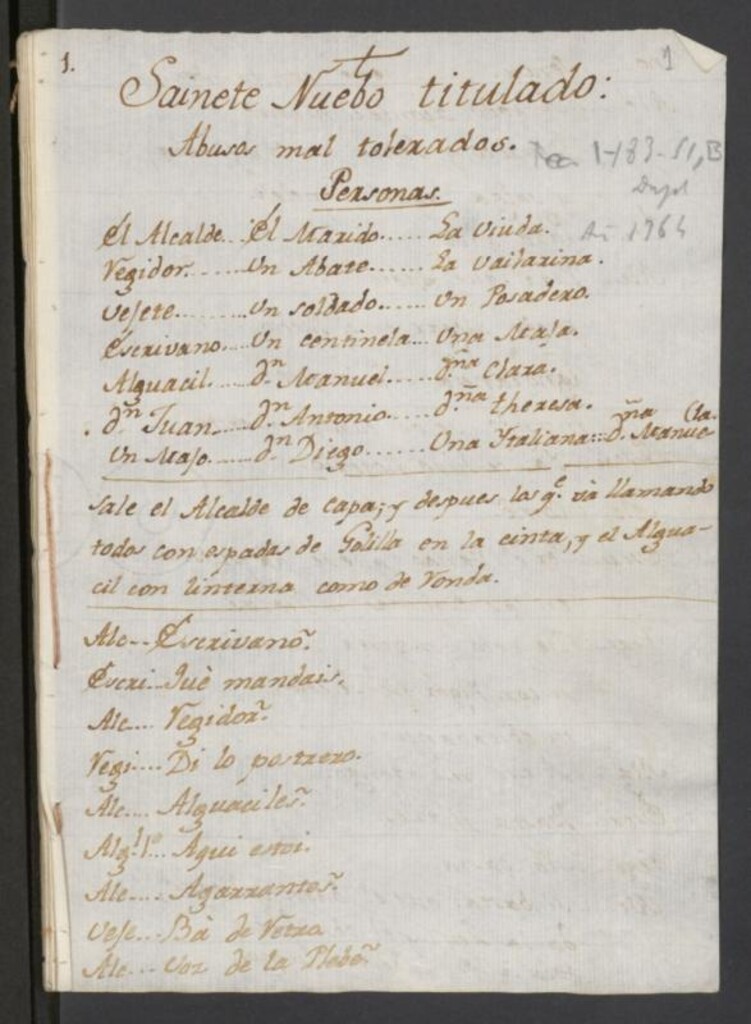 1.
1
Sainete Nuebo titulado:
Abusos mal tolerados.
1-183-51, B
Dupl
1764
Personas.
El Alcalde.. El Marido..... La viuda.
Regidor....... Un Abate...... La vailarina.
Vejete......... Un soldado.... Un Posadero.
Escrivano.... Un centinela... Una Maja.
Alguacil.... dn Manuel..... dna Clara.
dn Juan..... dn Antonio..... dna theresa.
Un Majo...... dn Diego....... Una Ytaliana:: dna Manuela.
Sale el Alcalde de capa, y despues los qe. và llamando
todos con espadas de Golilla en la cinta, y el Algua-
cil con linterna como de Ronda.
Alc... Escrivano?
Escri... Què mandais.
Alc.... Regidor?
Regi.... Di lo postrero.
Alc.... Alguaciles?
Alg.l 1o... Aqui estoi.
Alc.... Agarrantes?
Veje... Bà de Retra
Alc... Voz de la Plebe?